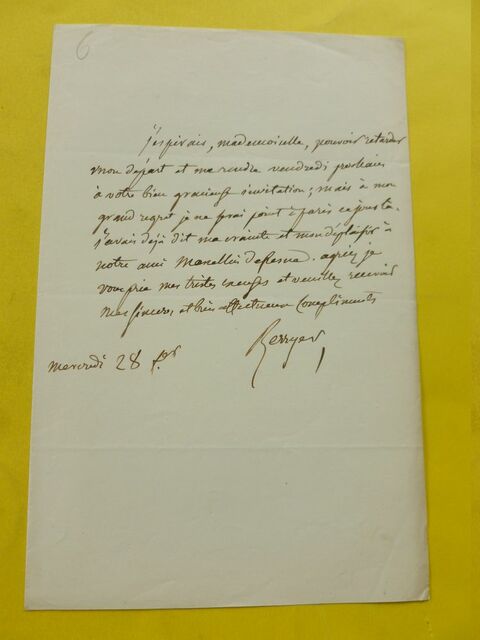 6
j'espérais, mademoiselle, pouvoir retarder
mon départ et me rendre vendredi prochain
à votre bien gracieuse invitation; mais à mon
grand regret je ne serai point à paris ce jour la.
j'avais déjà dit ma crainte et mon déplaisir à
notre ami Marcellin de Fresne. agréez je
vous prie mes tristes excuses et veuillez recevoir
mes sincères et bien affectueux Compliments
Berryer
mercredi 28